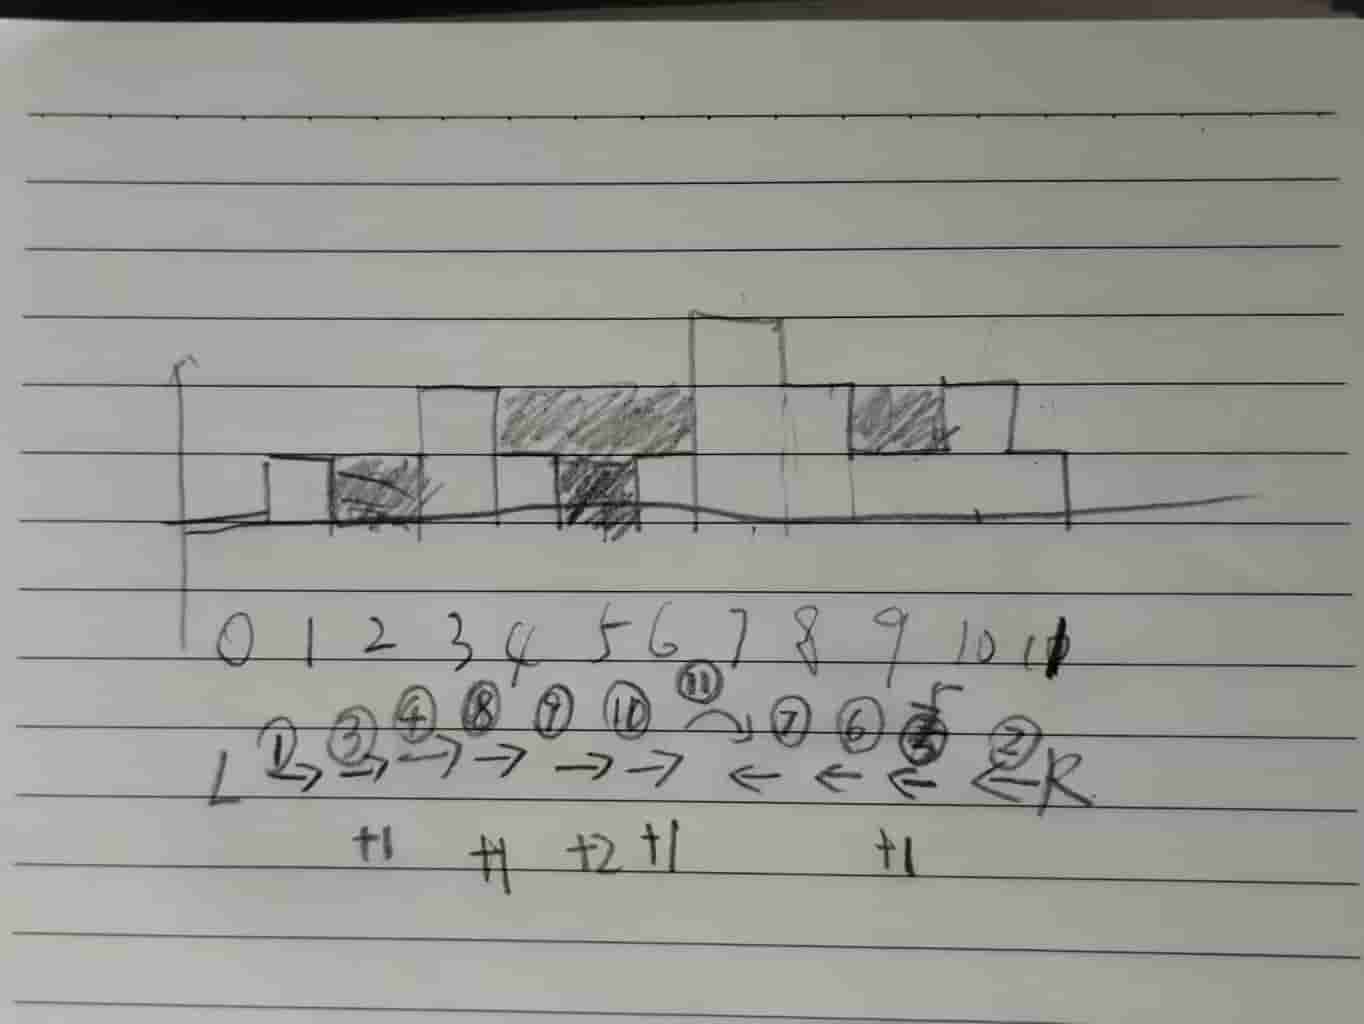 0 1 2 3 4 5 6 7 8 9 10 11
① ③ ④ ⑧ ⑨ ⑩ ⑪ ⑦ ⑥ 5 ②
L → → → → → → ← ← ← ← R
+1 +1 +2 +1 +1